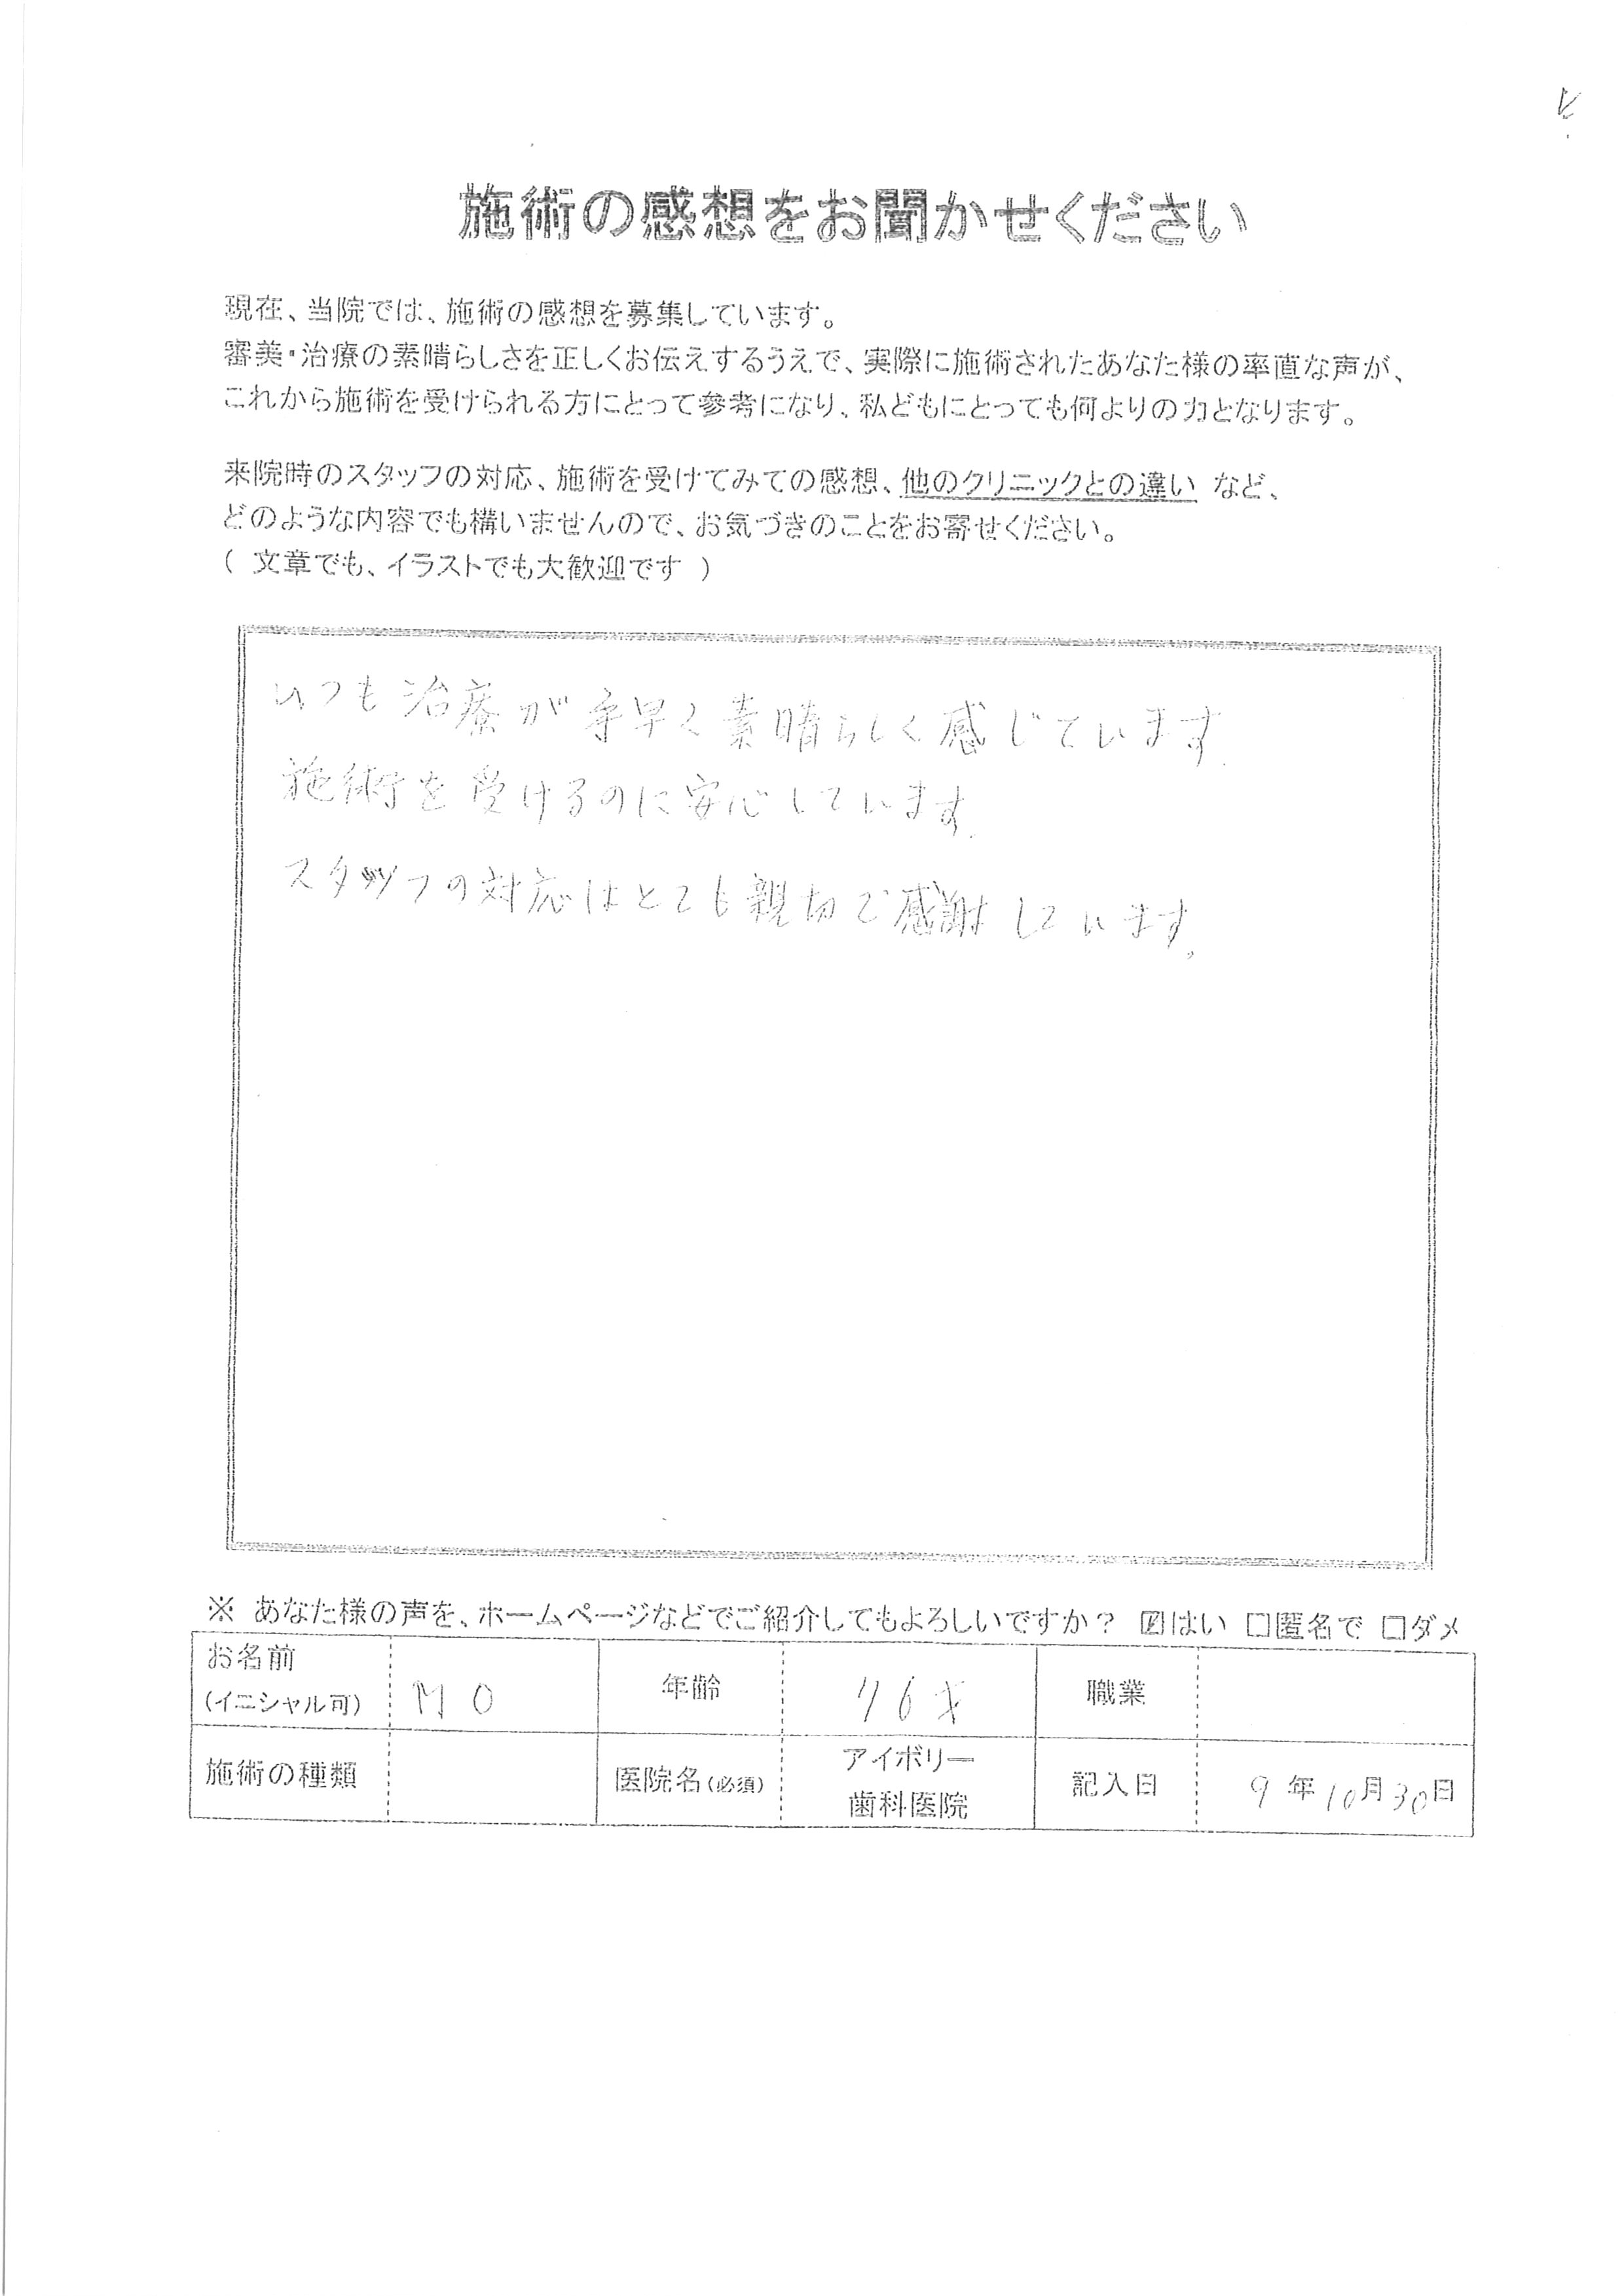 施術の感想をお聞かせください
現在、当院では、施術の感想を募集しています。
審美・治療の素晴らしさを正しくお伝えするうえで、実際に施術されたあなた様の率直な声が、
これから施術を受けられる方にとって参考になり、私どもにとっても何よりの力となります。
来院時のスタッフの対応、施術を受けてみての感想、他のクリニックとの違い など、
どのような内容でも構いませんので、お気づきのことをお寄せください。
( 文章でも、イラストでも大歓迎です )
いつも治療が手早く素晴らしく感じています.
施術を受けるのに安心しています.
スタッフの対応はとても親切で感謝しています。
※ あなた様の声を、ホームページなどでご紹介してもよろしいですか? ☑はい □匿名で □ダメ
お名前
(イニシャル可) MO 年齢 76才 職業
施術の種類 医院名(必須) アイボリー
歯科医院 記入日 9年10月30日